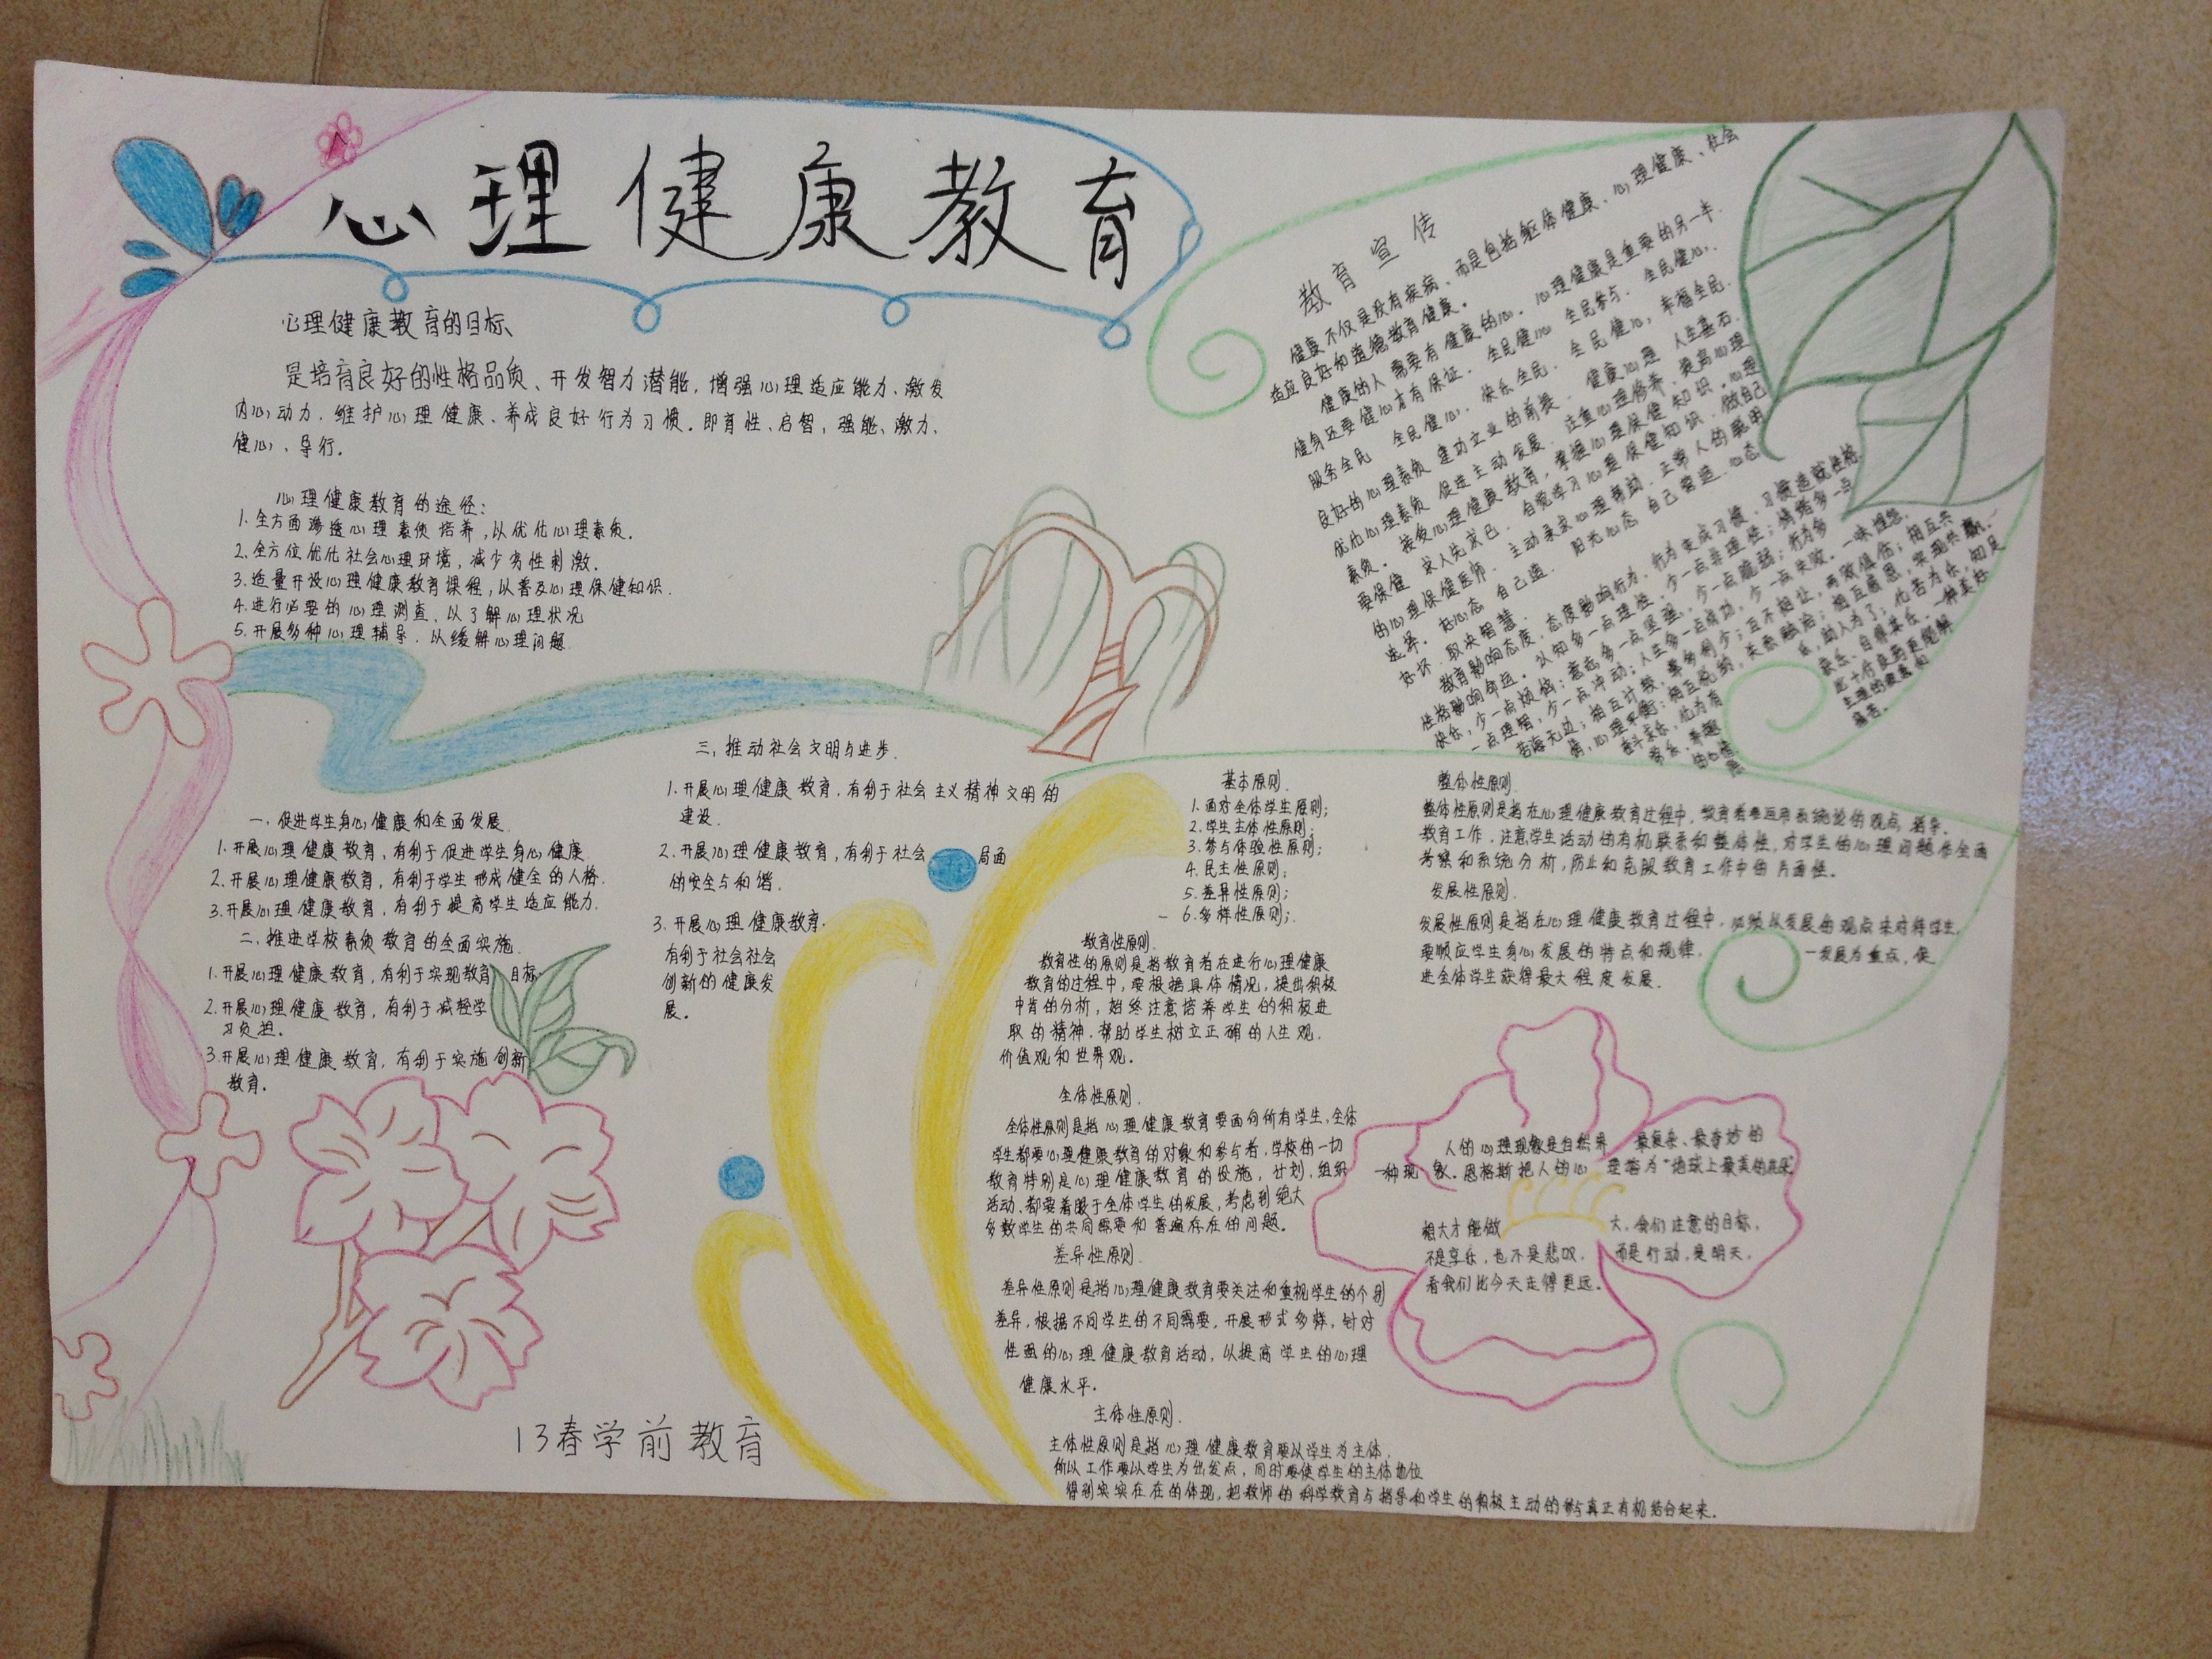 心理健康教育
心理健康教育的目标
是培育良好的性格品质、开发智力潜能，增强心理适应能力、激发
内心动力、维护心理健康、养成良好行为习惯。即育性、启智、强能、激力、
健心、导行。
心理健康教育的途径：
1. 全方面渗透心理素质培养，以优化心理素质。
2. 全方位优化社会心理环境，减少劣性刺激。
3. 适量开设心理健康教育课程，以普及心理保健知识.
4. 进行必要的心理测查、以了解心理状况
5. 开展多种心理辅导、以缓解心理问题
教育宣传
健康不仅是没有疾病、而是包括躯体健康、心理健康、社会
适应良好和道德教育健康。
健康的人需要有健康的心. 心理健康是重要的另一半.
健身还要健心才有保证. 全民健心 全民参与. 全民健心,
服务全民 全民健心, 快乐全民. 全民健心, 幸福全民.
良好的心理素质 建功立业的前提. 健康心理 人生基石.
优化心理素质 促进主动发展. 注重心理修养. 提高心理
素质. 接受心理健康教育, 掌握心理保健知识. 心理
要保健 求人先求己. 自觉学习心理保健知识. 做自己
的心理保健医师. 主动寻求心理帮助. 正常人的聪明
选择. 好心态 自己造. 阳光心态 自己营造. 心态
好坏. 取决智慧.
教育影响态度, 态度影响行为, 行为变成习惯, 习惯造就性格
性格影响命运. 认知多一点理性, 少一点非理性; 情绪多一点
快乐, 少一点烦恼; 意志多一点坚强, 少一点脆弱; 行为多
一点理智, 少一点冲动; 人生多一点成功, 少一点失败. 一味埋怨,
三、推动社会文明与进步.
1. 开展心理健康教育, 有利于社会主义精神文明的
建设.
2. 开展心理健康教育, 有利于社会 局面
的安全与和谐.
3. 开展心理健康教育.
有利于社会社会
创新的健康发
展。
一、促进学生身心健康和全面发展.
1. 开展心理健康教育, 有利于促进学生身心健康.
2. 开展心理健康教育, 有利于学生形成健全的人格.
3. 开展心理健康教育, 有利于提高学生适应能力.
二、推进学校素质教育的全面实施.
1. 开展心理健康教育, 有利于实现教育 目标.
2. 开展心理健康教育, 有利于减轻学
习负担。
3. 开展心理健康教育, 有利于实施创新
教育。
13春学前教育
基本原则.
1. 面对全体学生原则;
2. 学生主体性原则;
3. 参与体验性原则;
4. 民主性原则;
5. 差异性原则;
6. 多样性原则;
教育性原则.
教育性的原则是指教育者在进行心理健康
教育的过程中, 要根据具体情况, 提出积极
中肯的分析, 始终注意培养学生的积极进
取的精神, 帮助学生树立正确的人生观.
价值观和世界观。
全体性原则.
全体性原则是指心理健康教育要面向所有学生, 全体
学生都要心理健康教育的对象和参与者, 学校的一切
教育特别是心理健康教育的设施, 计划, 组织
活动. 都要着眼于全体学生的发展, 考虑到绝大
多数学生的共同需要和普遍存在的问题。
差异性原则.
差异性原则是指心理健康教育要关注和重视学生的个别
差异, 根据不同学生的不同需要, 开展形式多样, 针对
性强的心理健康教育活动, 以提高学生的心理
健康水平。
主体性原则.
主体性原则是指心理健康教育要以学生为主体.
所以工作要以学生为出发点, 同时要使学生的主体地位
得到实实在在的体现, 把教师的科学教育与指导和学生的积极主动的参与真正有机结合起来.
整体性原则
整体性原则是指在心理健康教育过程中, 教育者要运用系统论的观点 指导.
教育工作, 注意学生活动的有机联系和整体性, 对学生的心理问题作全面
考察和系统分析, 防止和克服教育工作中的片面性。
发展性原则.
发展性原则是指在心理健康教育过程中, 必须以发展的观点来对待学生.
要顺应学生身心发展的特点和规律. 一发展为重点, 促
进全体学生获得最大程度发展.
人的心理现象是自然界 最复杂、最奇妙的
一种现象. 恩格斯把人的心 理誉为“地球上最美的花朵”
想大才能做 大, 我们注意的目标,
不是享乐, 也不是悲叹, 而是行动, 是明天,
看我们比今天走得更远。